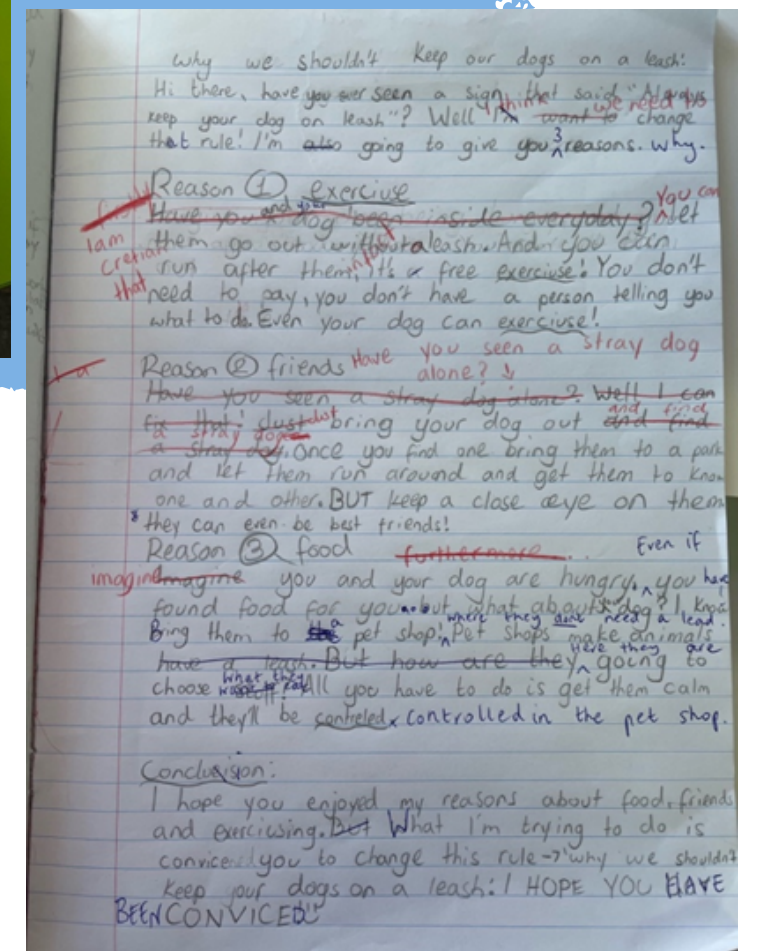 why we shouldn't keep our dogs on a leash:
Hi there, have you ever seen a sign, that said "Always
keep your dog on leash"? Well I think we need to want to change
that rule! I'm also going to give you 3 reasons. why.
Reason 1 exerciuse
Have you and your dog been inside everyday? You can let
them go out without a leash. And you can
I am cretian that
run after them, infact it's a free exerciuse! You don't
need to pay, you don't have a person telling you
what to do. Even your dog can exerciuse!
Reason 2 friends Have you seen a stray dog
alone?
Have you seen a stray dog alone? Well I can
fix that! Just bring your dog out and find and find
a stray dog a stray dog. Once you find one bring them to a park
and let them run around and get them to know
one and other. BUT keep a close eye on them
they can even be best friends!
Reason 3 food furthermore Even if
imagine Imagine you and your dog are hungry. you have
found food for you but what about dog? I know
Bring them to a pet shop! where they dont need a lead. Pet shops make animals
have a leash. But how are they Here they are going to
choose what they All you have to do is get them calm
and they'll be controled controlled in the pet shop.
Conclusion:
I hope you enjoyed my reasons about food, friends
and exerciusing. But What I'm trying to do is
convice you to change this rule → "why we shouldn't
keep our dogs on a leash: I HOPE YOU HAVE
BEEN CONVICED!"